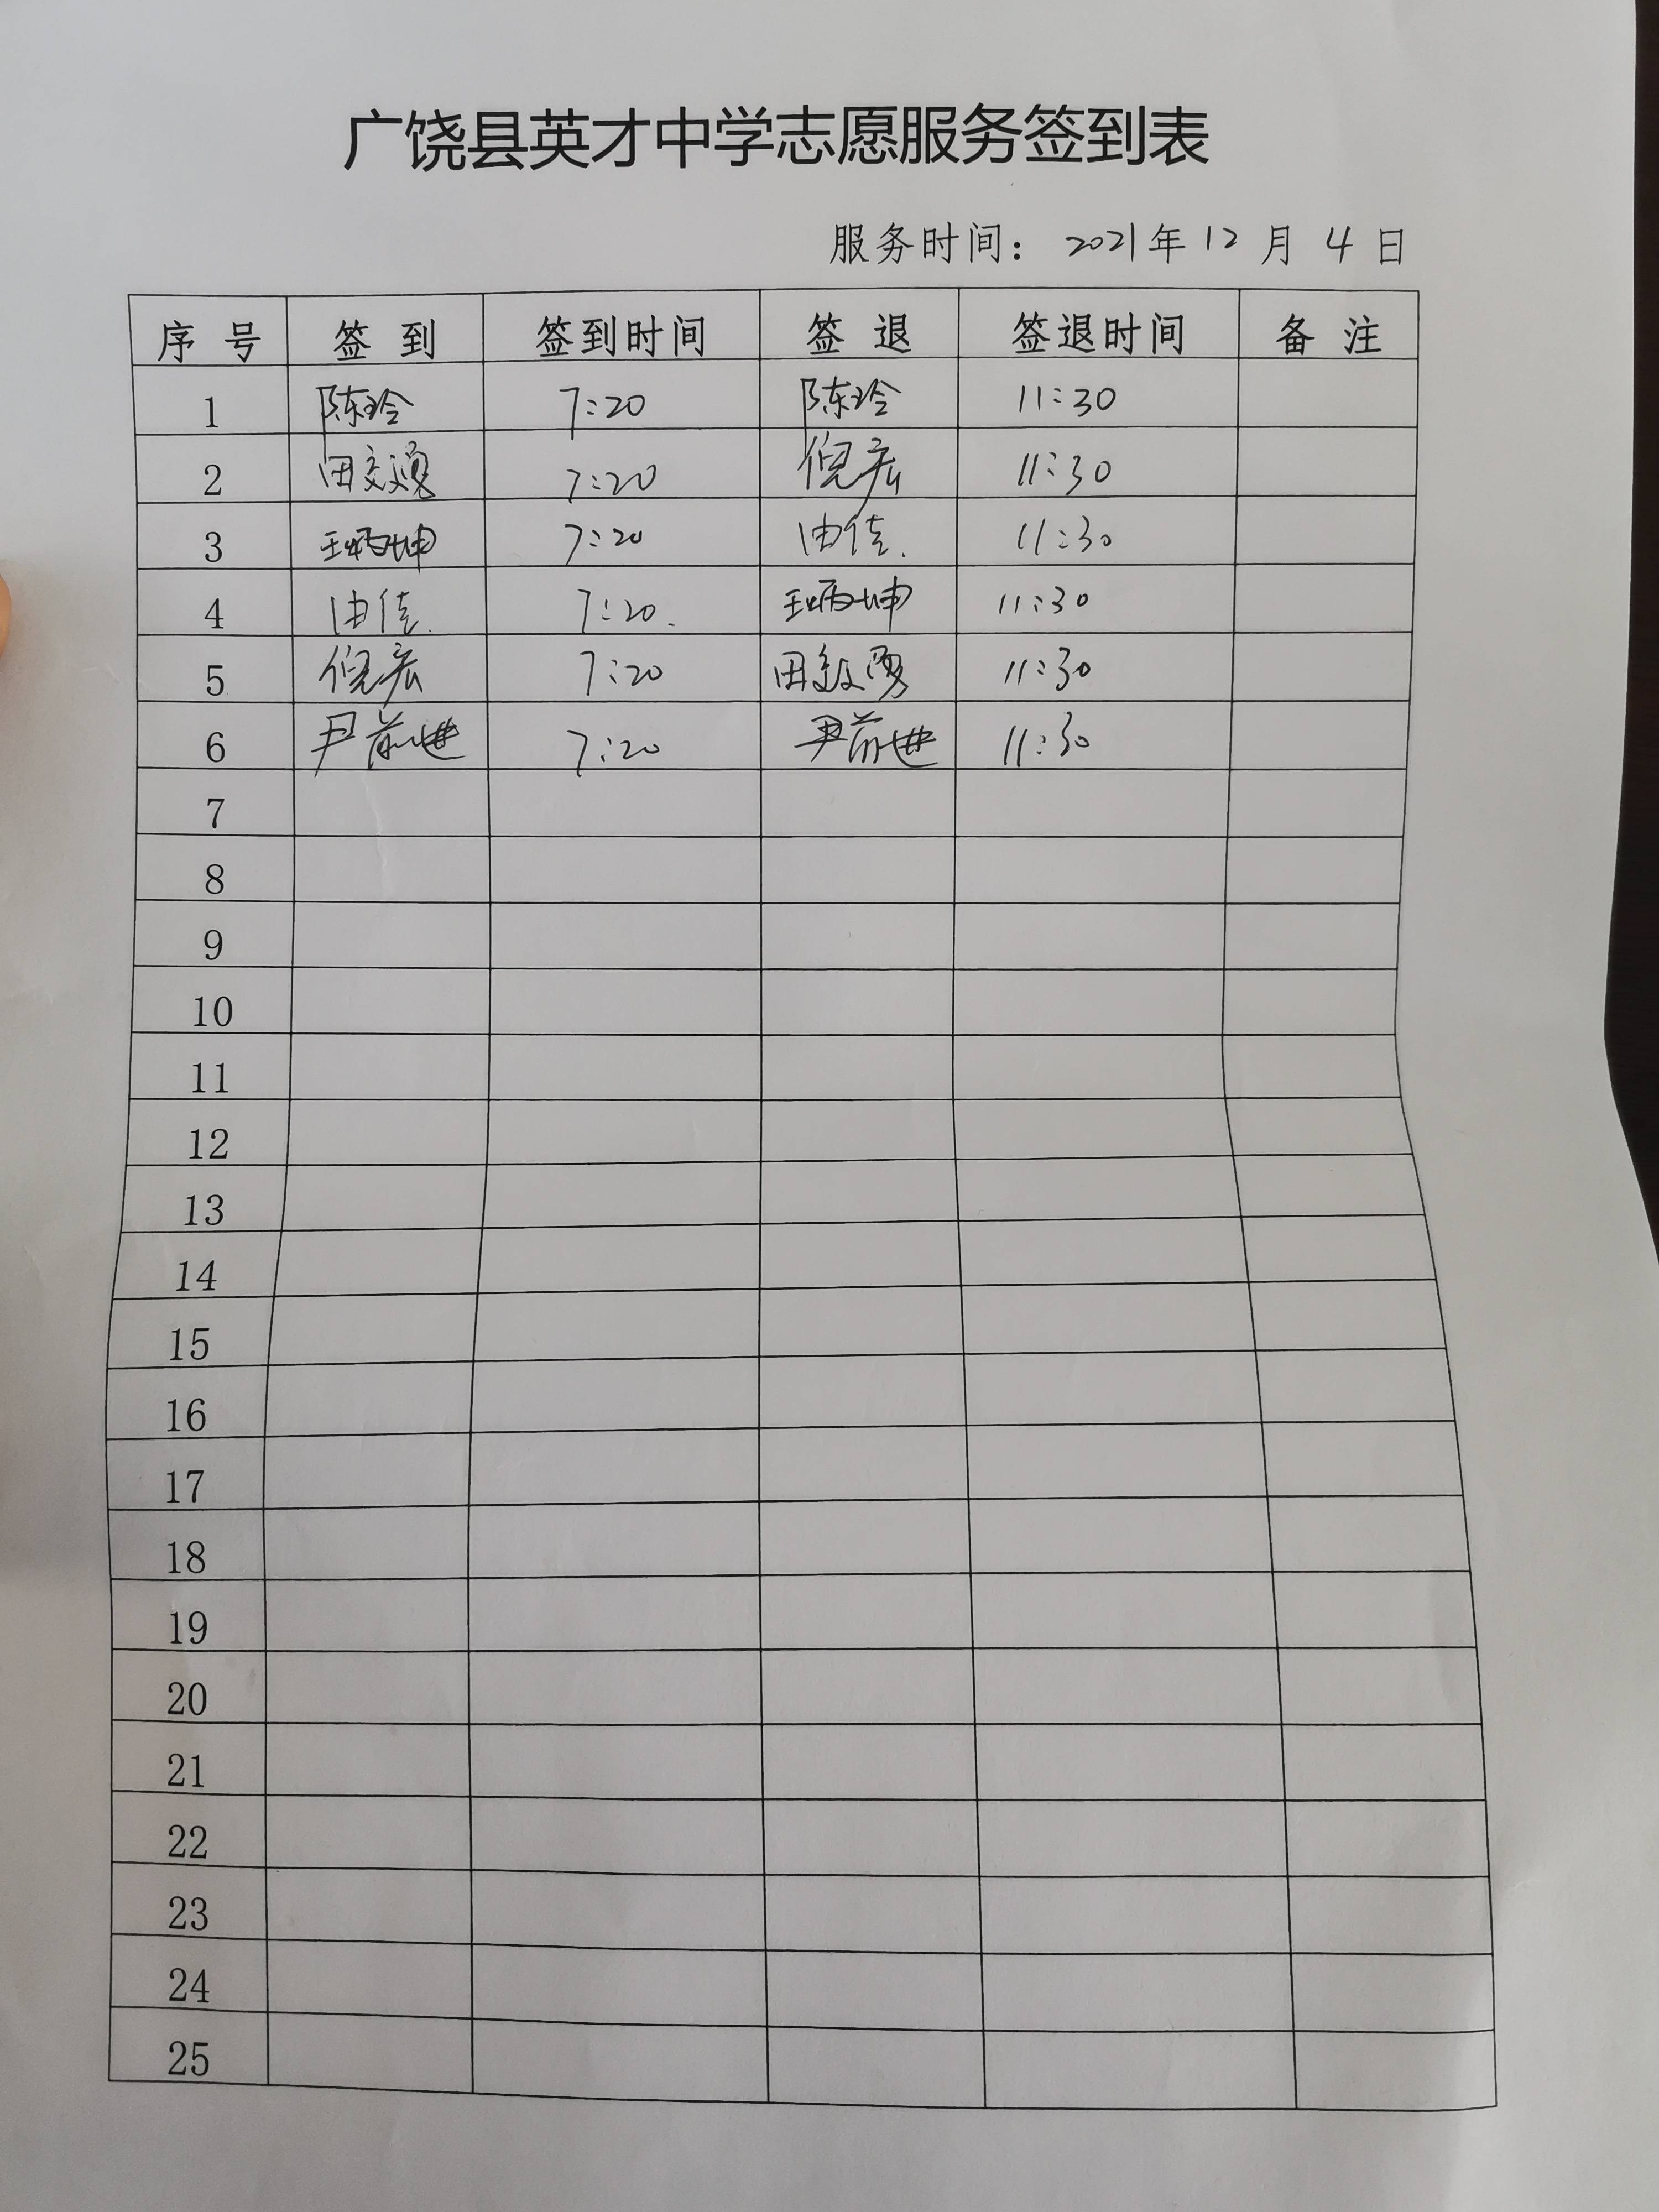 广饶县英才中学志愿服务签到表
服务时间： 2021年12月4日
序号 签到 签到时间 签退 签退时间 备注
1 陈玲 7:20 陈玲 11:30
2 7:20 倪宏 11:30
3 王炳坤 7:20 由佳. 11:30
4 由佳. 7:20. 王炳坤 11:30
5 倪宏 7:20 11:30
6 尹前进 7:20 尹前进 11:30
7
8
9
10
11
12
13
14
15
16
17
18
19
20
21
22
23
24
25